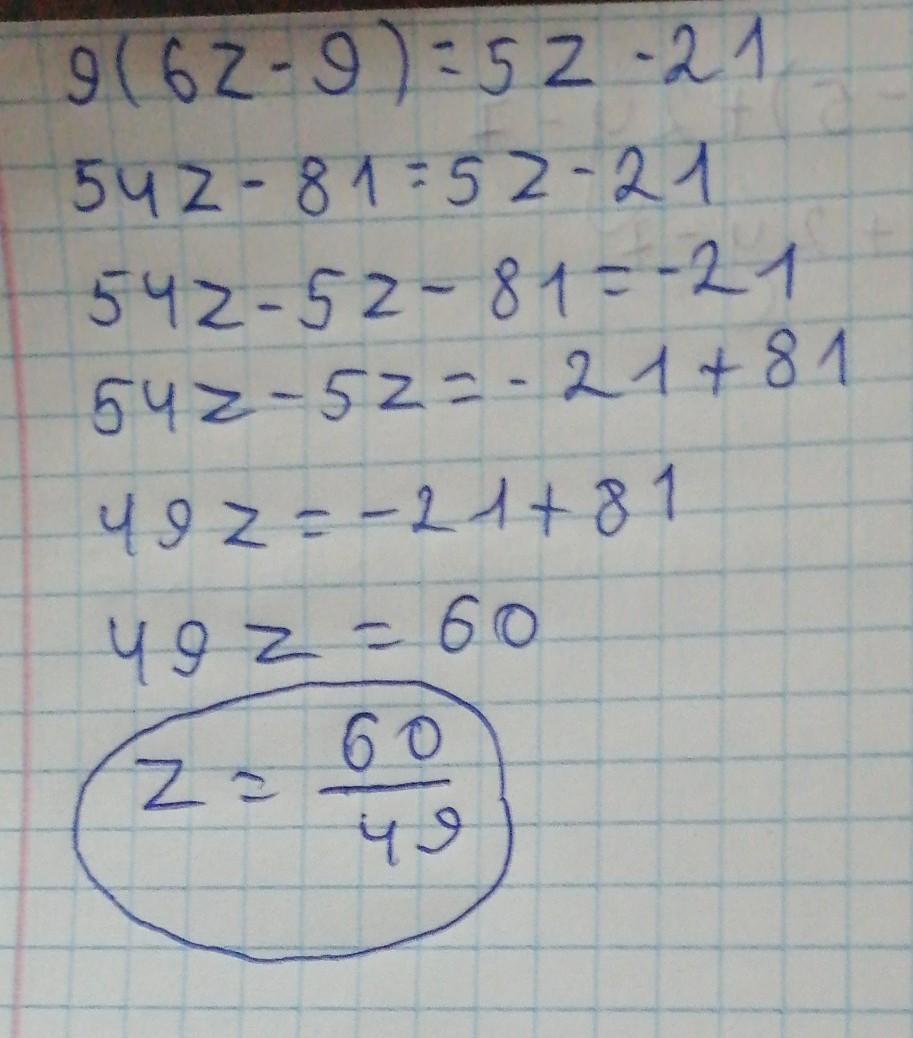 9(6z-9)=5z-21
54z-81=5z-21
54z-5z-81=-21
54z-5z=-21+81
49z=-21+81
49z=60
z=60/49